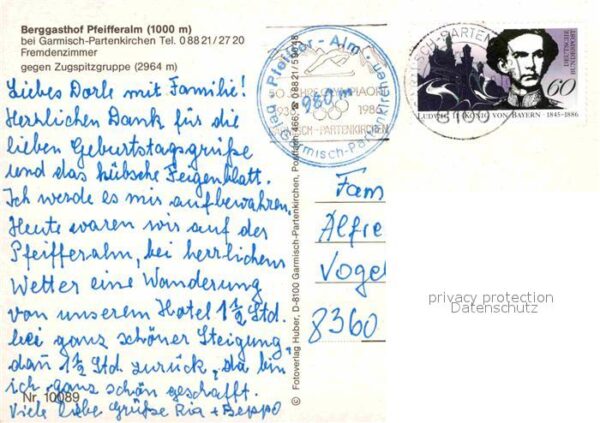 Berggasthof Pfeifferalm (1000 m)
bei Garmisch-Partenkirchen Tel. 0 88 21/27 20
Fremdenzimmer
gegen Zugspitzgruppe (2964 m)
Liebes Dorle mit Familie!
Herrlichen Dank für die
lieben Geburtstagsgrüße
und das hübsche Feigenblatt.
Ich werde es mir aufbewahren.
Heute waren wir auf der
Pfeifferalm, bei herrlichem
Wetter eine Wanderung
von unserem Hotel 1½ Std.
bei ganz schöner Steigung,
dañ 1½ Std. zurück, da bin
ich ganz schön geschafft.
Viele liebe Grüße Ria + Beppo
Nr. 10089
© Fotoverlag Huber, D-8100 Garmisch-Partenkirchen, Postfach 466,
Pfeiffer-Alm
980 m
bei Garmisch-Partenkirchen
50 JAHRE OLYMPIAORT
1936 1986
GARMISCH-PARTENKIRCHEN
DEUTSCHE BUNDESPOST
60
LUDWIG II · KÖNIG VON BAYERN · 1845-1886
Fam
Alfre
Vogel
8360
privacy protection
Datenschutz